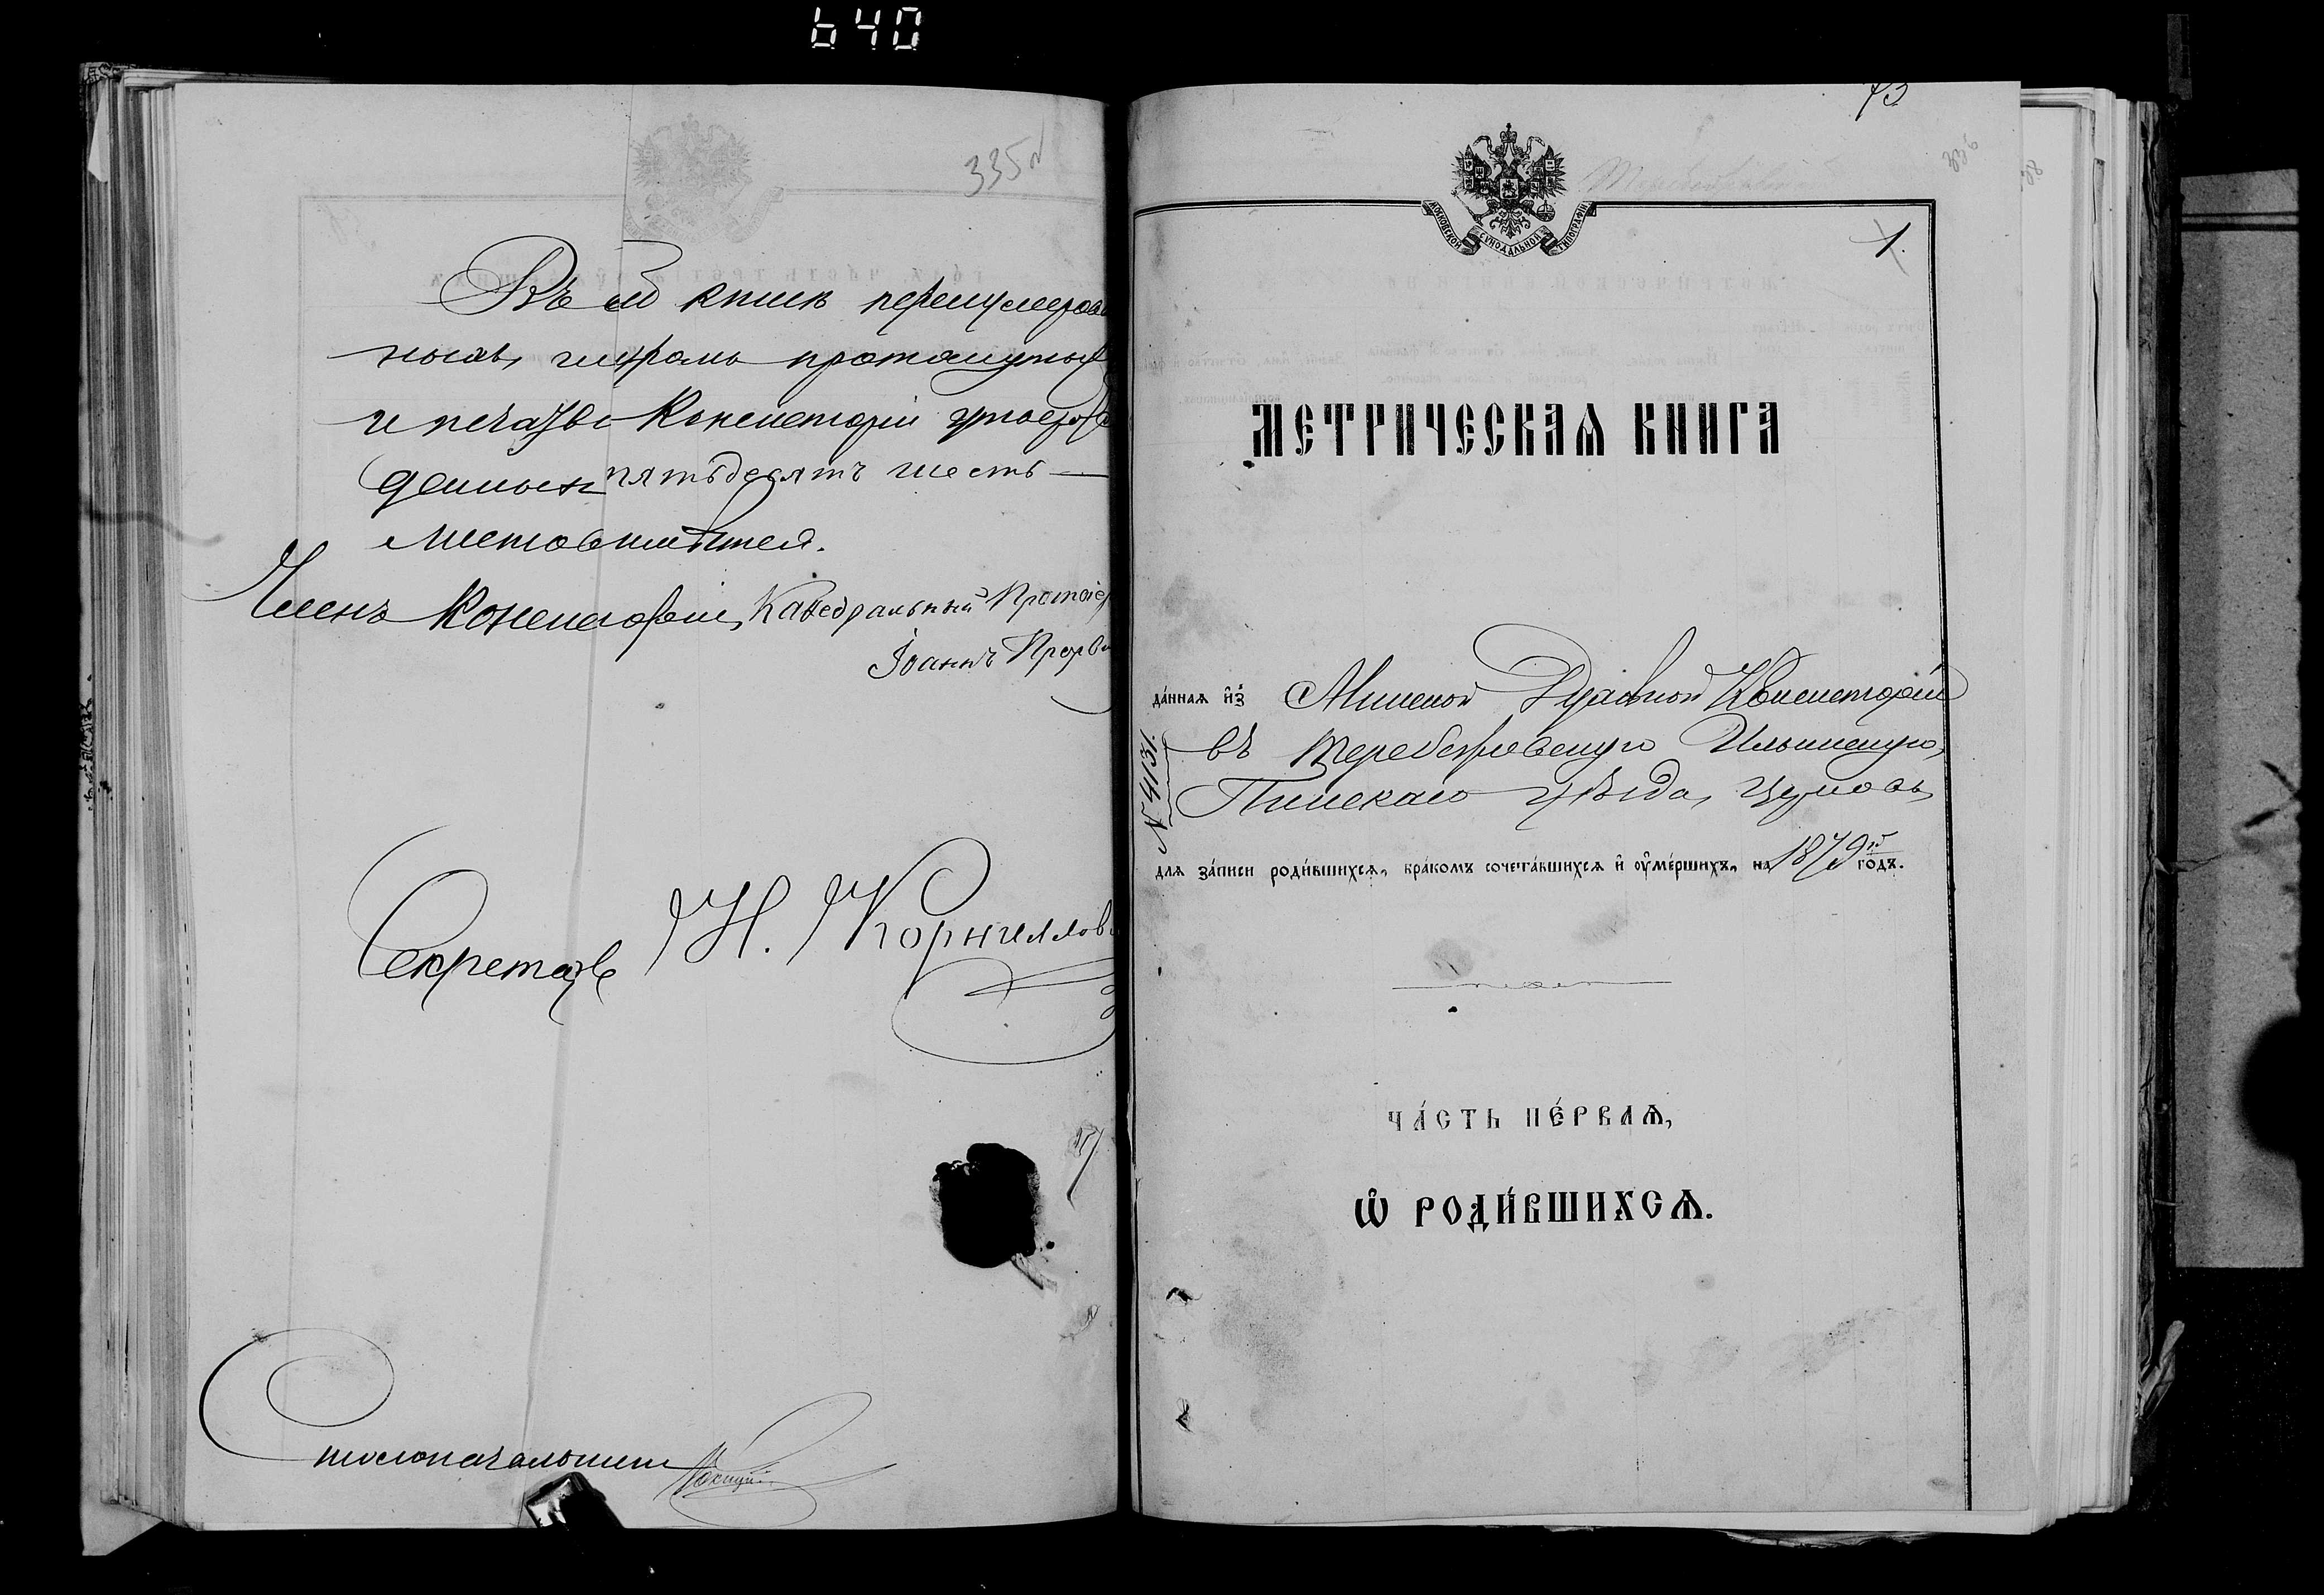 640
335
Въ сей книгѣ перенумерован
ныхъ, шнуромъ протянутыхъ
и печатью Консисторіи утверж
денныхъ пятьдесятъ шесть
листовъ
Членъ Консисторіи, Каѳедральный Протоіер
Іоаннъ
Секретарь Н. Корнилов
Столоначальникъ
73
336
МОСКОВСКОЙ СѴНОДАЛЬНОЙ ТИПОГРАФІИ
1.
МЕТРИЧЕСКАѦ КНИГА
да́ннаѧ и҆з̾ Минской Духовной Консисторіи
въ Теребежовскую Ильинскую,
Пинскаго уѣзда, церковь
№ 4131.
длѧ за́писи роди́вшихсѧ, бра́комъ сочета́вшихсѧ и҆ ᲂу҆ме́ршихъ, на 1879й го́дъ.
ЧА́СТЬ ПЕ́РВАѦ,
Ѽ РОДИ́ВШИХСѦ.